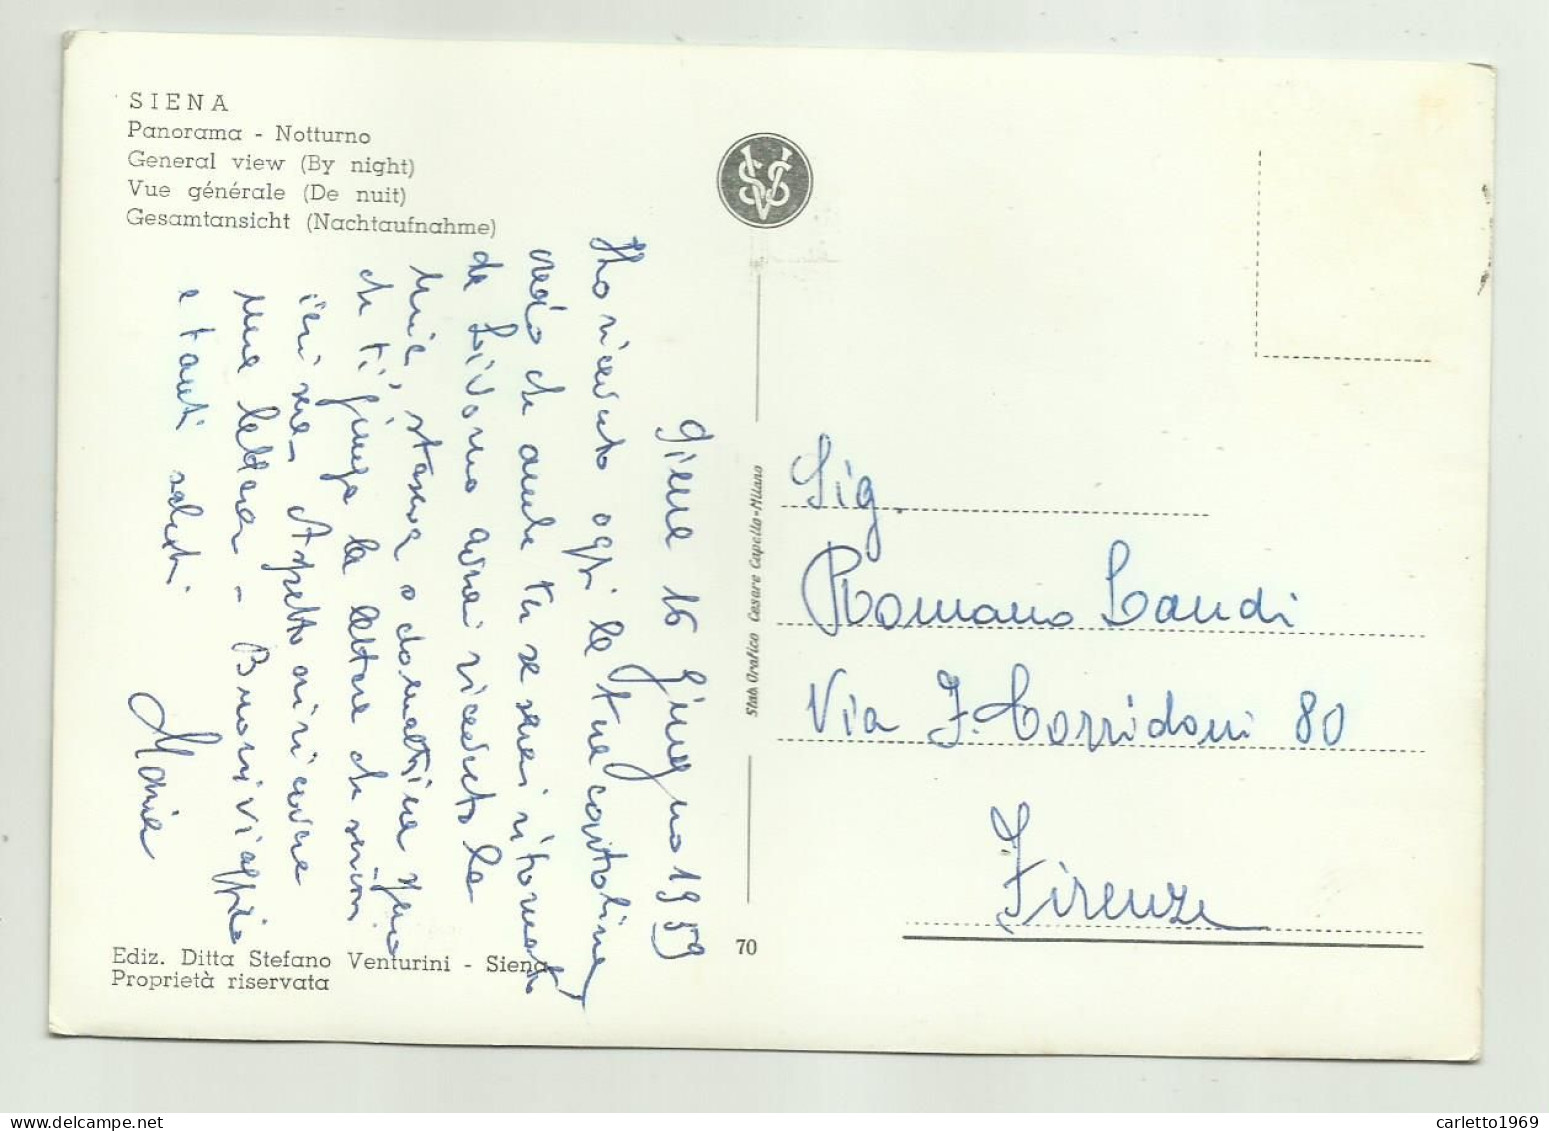 SIENA
Panorama - Notturno
General view (By night)
Vue générale (De nuit)
Gesamtansicht (Nachtaufnahme)
Siena 16 Giugno 1959
Ho ricevuto oggi la tua cartolina,
credo che anche tu se sarai ritornato
da Livorno avrai ricevuto la
mia, stasera o domattina spero
che ti giunga la lettera che scrissi
ieri sera. Aspetto ori ricevere
una lettera - Buoni viaggio
e tanti saluti.
Maria
Ediz. Ditta Stefano Venturini - Siena
Proprietà riservata
SVS
Stab. Grafico Cesare Capello-Milano
70
Sig.
Romano Landi
Via F. Corridoni 80
Firenze
carletto1969